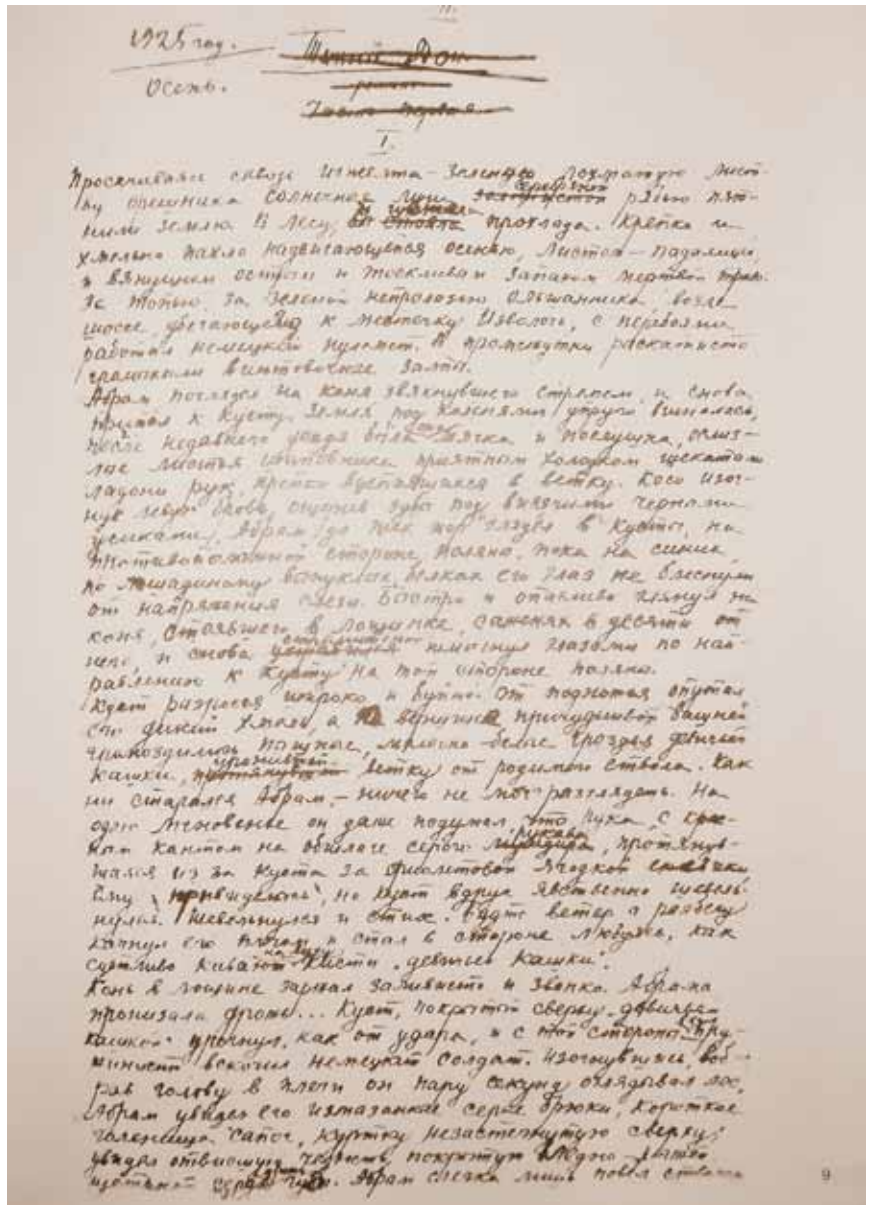 1925 год.
Осень.
Тихий Дон
роман
Часть первая
I.
Просачиваясь сквозь изжелта-зеленую лохматую лист-
ву орешника солнечные лучи серебряной рябью пят-
нили землю. В лесу, стояла прохлада. Крепко и
хмельно пахло надвигающейся осенью, листом-падалицей,
и вянущим острым и тоскливым запахом мертвой
За топью, за зеленой непролазью ольшанника, возле
шоссе, убегающего к местечку с перебоями
работал немецкий пулемет. В промежутки раскатисто
винтовочные залпы.
Абрам поглядел на коня звякнувшего стременем, и снова
припал к кусту. Земля под коленями упруго вгиналась,
после недавнего дождя была мягка и послушна,
лые листья шиповника приятным холодком щекотали
ладони рук, крепко вцепившихся в ветку. Косо изог-
нув левую бровь, ощерив зубы под висячими черными
усиками, Абрам до тех пор глядел в кусты, на
противоположной стороне поляны, пока на синих
по лошадиному выпуклых белках его глаз не блеснули
от напряжения слезы. Быстро и опасливо глянул на
коня, стоявшего в лощинке, саженях в десяти от
него, и снова глазами по нап-
равлению к кусту на той стороне поляны.
Куст разросся широко и буйно. От подножья опутал
его дикий хмель, а на вершине причудливой башней
громоздились пышные, молочно-белые гроздья девичьей
кашки, ветку от родимого ствола. Как
ни старался Абрам, - ничего не мог разглядеть. На
одно мгновенье он даже подумал что рука, с крас-
ным кантом на обшлаге серого рукава мундира, протянув-
шаяся из за куста за фиолетовой ягодкой
ему привиделась, но куст вдруг явственно шевель-
нулся. Шевельнулся и стих. Будто ветер с разбегу
качнул его и стал в стороне любуясь, как
суетливо кивают кисти „девичьей кашки".
Конь в лощине заржал заливисто и звонко. Абрама
пронизала дрожь... Куст, покрытый сверху девичьей
кашкой дрогнул, как от удара, и с той стороны пру-
жинисто вскочил немецкий солдат. Изогнувшись, воб-
рав голову в плечи он пару секунд оглядывал лес,
Абрам увидел его измазанные серые брюки, короткие
голенища сапог, куртку незастегнутую сверху,
увидел отвисшую челюсть, покрытую медно-рыжей
щетиной Абрам слегка лишь повел стволом
9